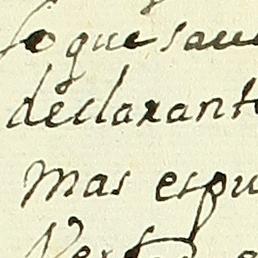 lo que sau
declarant
mas espu